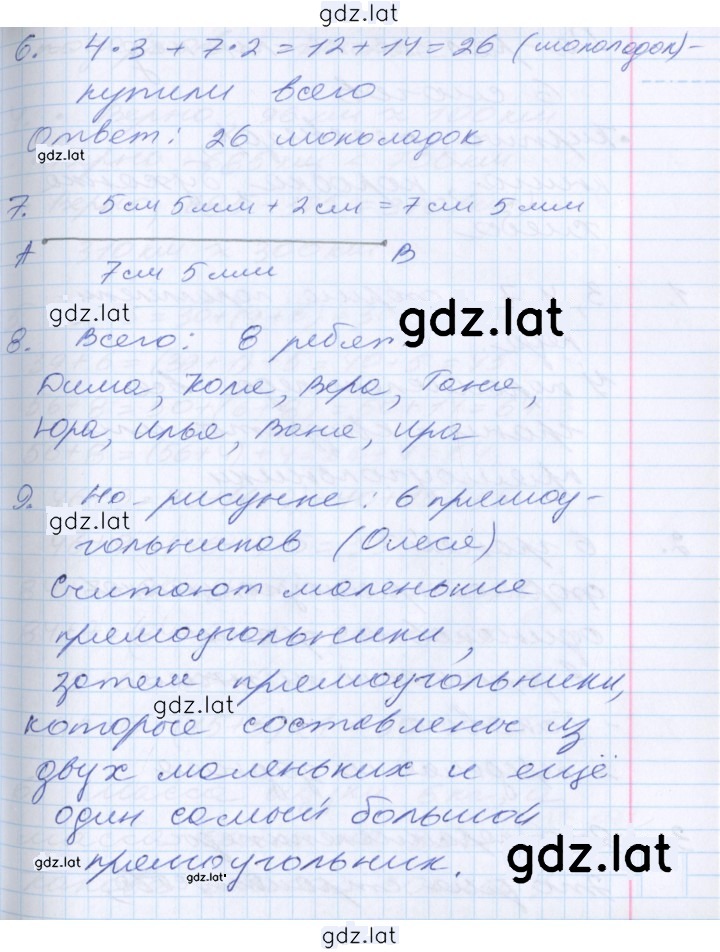 gdz.lat
6. 4·3 + 7·2 = 12 + 14 = 26 (шоколадок) -
купили всего
Ответ: 26 шоколадок
gdz.lat
7. 5см 5мм + 2см = 7см 5мм
A B
7см 5мм
gdz.lat
gdz.lat
8. Всего: 8 ребят
Дима, Коля, Вера, Таня,
Юра, Илья, Ваня, Ира
9. На рисунке: 6 прямоу-
gdz.lat
гольников (Олеся)
Считают маленькие
прямоугольники,
затем прямоугольники,
gdz.lat
которые составлены из
двух маленьких и ещё
один самый большой
прямоугольник.
gdz.lat
gdz.lat
gdz.lat
gdz.lat